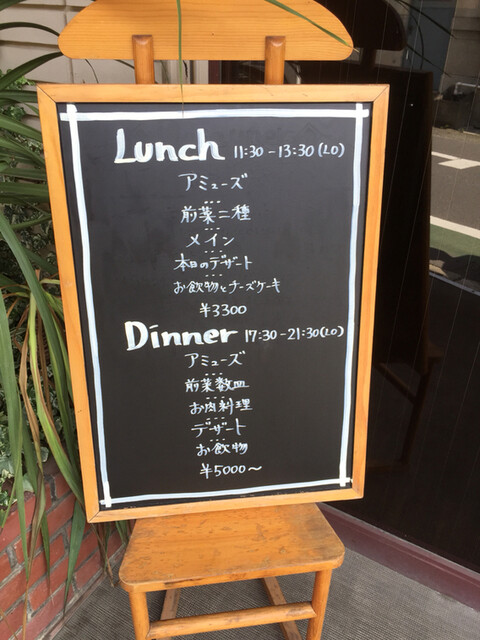 Lunch 11:30-13:30(LO)
アミューズ
前菜二種
メイン
本日のデザート
お飲物とチーズケーキ
¥3300
Dinner 17:30-21:30(LO)
アミューズ
前菜数皿
お肉料理
デザート
お飲物
¥5000～